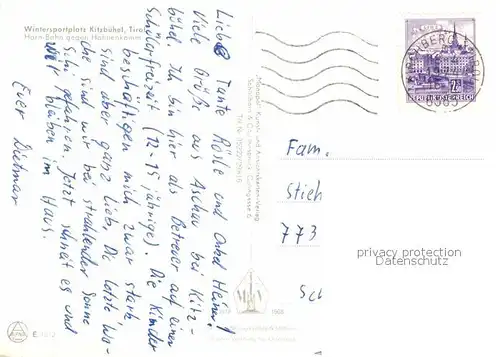 Wintersportplatz Kitzbühel, Tirol
Horn-Bahn gegen Hahnenkamm
Liebe Tante Rösle und Onkel Heiner!
Viele Grüße aus Aschau bei Kitz-
bühel. Ich bin hier als Betreuer auf einer
Schülerfreizeit (12-15 jährige). Die Kinder
beschäftigen mich zwar stark,
sind aber ganz lieb. Die letzte Wo-
che sind wir bei strahlender Sonne
Schi gefahren. Jetzt schneit es und
wir bleiben im Haus.
Euer Dietmar
Fam.
Stieh
773
Sch
REPUBLIK ÖSTERREICH
privacy protection
Datenschutz